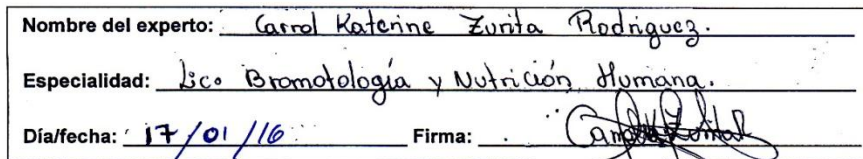 Nombre del experto: Carrol Katerine Zurita Rodriguez.
Especialidad: Lic. Bromotología y Nutrición Humana.
Día/fecha: 17/01/16 Firma: